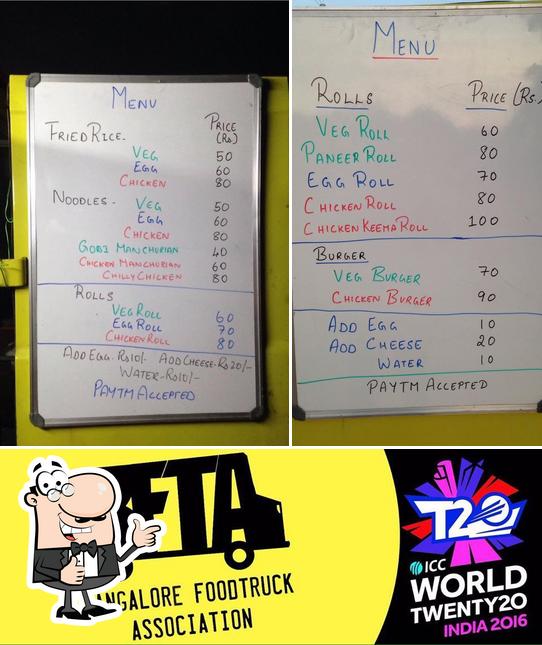 MENU
FRIED RICE. PRICE (Rs)
VEG 50
EGG 60
CHICKEN 80
NOODLES - VEG 50
EGG 60
CHICKEN 80
GOBI MANCHURIAN 40
CHICKEN MANCHURIAN 60
CHILLY CHICKEN 80
ROLLS
VEG ROLL 60
EGG ROLL 70
CHICKEN ROLL 80
ADD EGG. Rs10/- ADD CHEESE-Rs20/-
WATER-Rs10/-
PAYTM ACCEPTED
MENU
ROLLS PRICE (Rs.)
VEG ROLL 60
PANEER ROLL 80
EGG ROLL 70
CHICKEN ROLL 80
CHICKEN KEEMA ROLL 100
BURGER
VEG BURGER 70
CHICKEN BURGER 90
ADD EGG 10
ADD CHEESE 20
WATER 10
PAYTM ACCEPTED
FTA
ANGALORE FOODTRUCK
ASSOCIATION
T20
ICC
WORLD
TWENTY20
INDIA 2016